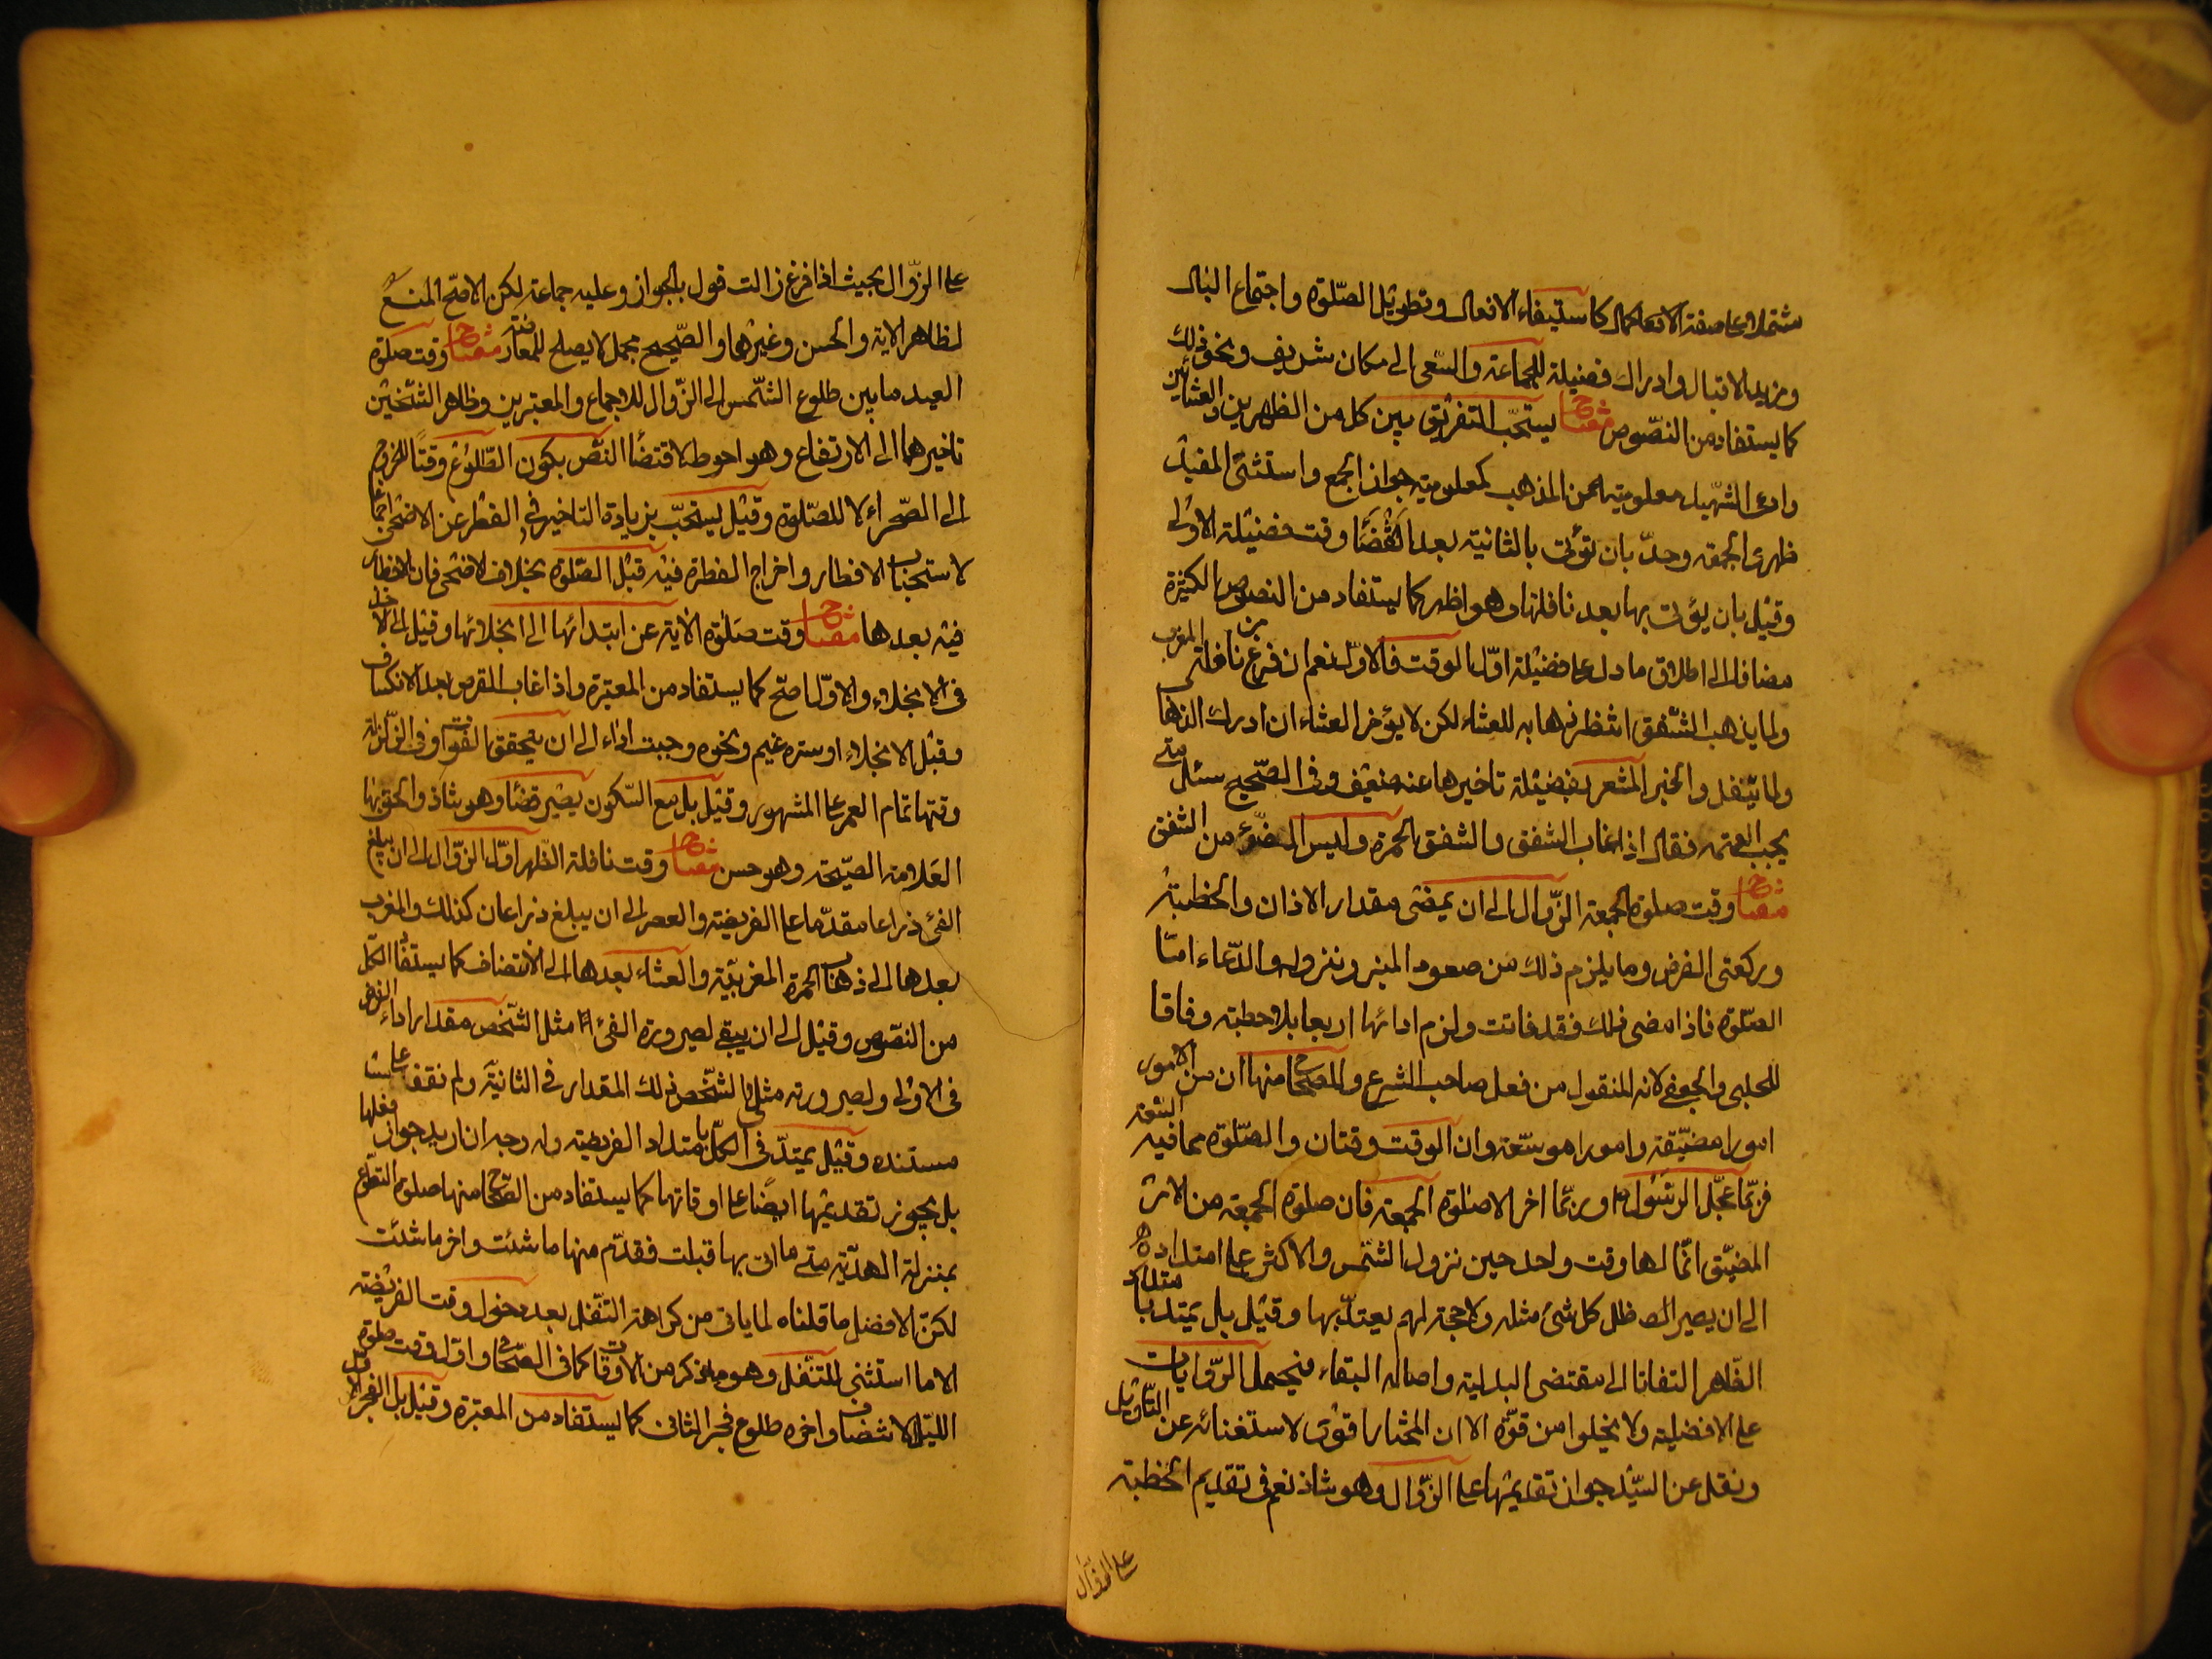 مشتملا على صفة الافعال كاستيفاء الافعال وتطويل الصلوة واجتماع البال
ومزيد الاقبال وادراك فضيلة الجماعة والسعى الى مكان شريف ونحو ذلك
كما يستفاد من النصوص مفتاح يستحب التفريق بين كل من الظهرين والعشائين
وادعى الشهيد معلوميته من المذهب كمعلومية جواز الجمع واستثنى المفيد
ظهرى الجمعه وحد بان يؤتى بالثانية بعد انقضاء وقت فضيلة الاولى
وقيل بان يؤتى بها بعد نافلتها وهو اظهر كما يستفاد من النصوص الكثيرة
مضافا الى اطلاق ما دل على فضيلة اول الوقت فالاول نعم ان فرغ من نافلتى المغرب
ولما يذهب الشفق انتظر ذهابه للعشاء لكن لا يؤخر العشاء ان ادرك الذهاب
ولما يتنفل والخبر المشعر بفضيلة تاخيرها عنه ضعيف وفى الصحيح سئل متى
يجب العتمه فقال اذا غاب الشفق والشفق الحمرة وليس الضوء من الشفق
مفتاح وقت صلوة الجمعة الزوال الى ان يمضى مقدار الاذان والخطبة
وركعتى الفرض وما يلزم ذلك من صعود المنبر ونزوله والدعاء امام
الصلوة فاذا مضى ذلك فقد فاتت ولزم ادائها اربعا بلا خطبة وفاقا
للحلبى والجعفى لانه المنقول من فعل صاحب الشرع وللصحاح منها ان من الامور
امورا مضيقة وامورا موسعة وان الوقت وقتان والصلوة مما فيه السعة
فربما عجل الرسول ص وربما اخر الا صلوة الجمعة فان صلوة الجمعة من الامر
المضيق انما لها وقت واحد حين نزول الشمس والاكثر على امتداده
الى ان يصير ظل كل شئ مثله ولا حجة لهم يعتد بها وقيل بل يمتد بامتداد
الظهر التفاتا الى مقتضى البدلية واصالة البقاء فيحمل الروايات
على الافضلية ولا يخلوا من قوة الا ان المختار اقوى لاستغنائه عن التاويل
ونقل عن السيد جواز تقديمها على الزوال وهو شاذ نعم فى تقديم الخطبة
على الزوال
على الزوال بحيث اذا فرغ زالت قول بالجواز وعليه جماعة لكن الاصح المنع
لظاهر الاية والحسن وغيرها والصحيح مجمل لا يصلح للمعارضة مفتاح وقت صلوة
العيد ما بين طلوع الشمس الى الزوال للاجماع والمعتبرين وظاهر الشيخين
تاخيرهما الى الارتفاع وهو احوط لاقتضاء النص بكون الطلوع وقتا للخروج
الى الصحراء لا للصلوة وقيل يستحب زيادة التاخير فى الفطر عن الاضحى اجماعا
لاستحباب الافطار واخراج الفطرة فيه قبل الصلوة بخلاف الاضحى فان الافطار
فيه بعدها مفتاح وقت صلوة الاية عن ابتدائها الى انجلائها وقيل الى الاخذ
فى الانجلاء والاول اصح كما يستفاد من المعتبرة واذا غاب القرص بعد الانكساف
وقبل الانجلاء او ستره غيم ونحوه وجبت اداء الى ان يتحقق الفوات وفى الزلزلة
وقتها تمام العمر على المشهور وقيل بل مع السكون يصير قضاء وهو شاذ والحق بها
العلامة الصيحة وهو حسن مفتاح وقت نافلة الظهر اول الزوال الى ان يبلغ
الفئ ذراعا مقدما على الفريضة والعصر الى ان يبلغ ذراعان كذلك والمغرب
بعدها الى ذهاب الحمرة المغربية والعشاء بعدها الى الانتصاف كما يستفاد الكل
من النصوص وقيل الى ان يبقى لصيرورة الفئ مثل الشخص مقدار اداء الفرض
فى الاولى ولصيرورته مثلى الشخص ذلك المقدار فى الثانية ولم نقف على
مستنده وقيل يمتد فى الكل بامتداد الفريضة وله وجه ان اريد جواز فعلها
بل يجوز تقديمها ايضا على اوقاتها كما يستفاد من الصحاح منها صلوة التطوع
بمنزلة الهدية متى ما اتى بها قبلت فقدم منها ما شئت واخر ما شئت
لكن الافضل ما قلناه لما ياتى من كراهة التنفل بعد دخول وقت الفريضة
الا ما استثنى للتنفل وهو ما ذكر من الاوقات كما فى الصحاح واول وقت صلوة
الليل الانتصاف واخره طلوع فجر الثانى كما يستفاد من المعتبرة وقيل بل الفجر الاول